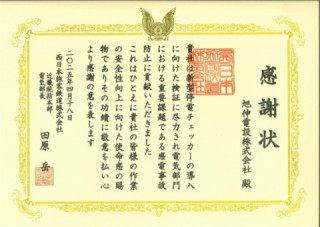 感謝状
旭伸電設株式会社 殿
貴社は新型停電チェッカーの導入
に向けた検証に尽力され電気部門
における重要課題である感電事故
防止に貢献いただきました
これはひとえに貴社の皆様の作業
の安全性向上に向けた使命感の賜
物でありその功績に敬意を払い心
より感謝の意を表します
二〇二五年四月十八日
西日本旅客鉄道株式会社
近畿統括本部
電気部長 田原 岳